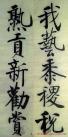 我藝黍稷稅
熟貢新勸賞